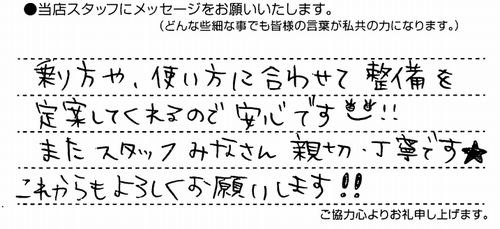 ●当店スタッフにメッセージをお願いいたします。
（どんな些細な事でも皆様の言葉が私共の力になります。）
乗り方や、使い方に合わせて 整備を
定案してくれるので 安心です!!
また スタッフ みなさん 親切・丁寧です★
これからもよろしくお願いします!!
ご協力心よりお礼申し上げます。